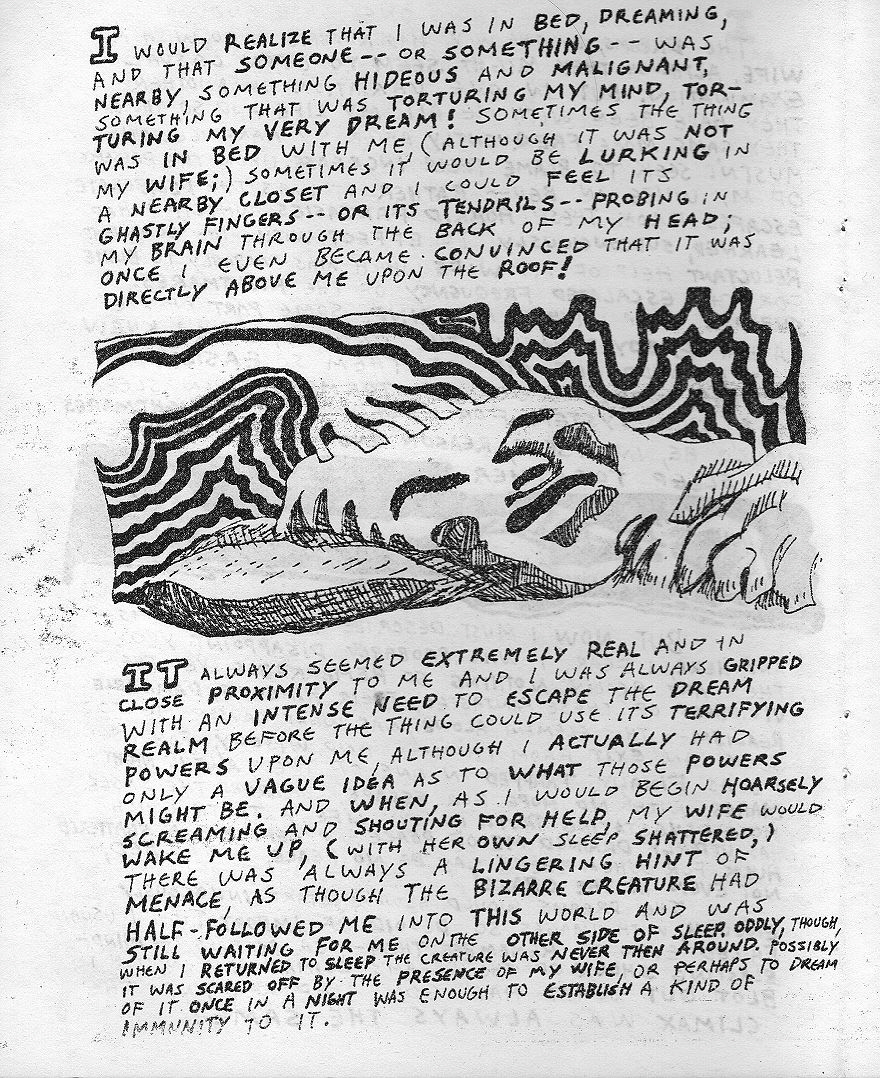 I WOULD REALIZE THAT I WAS IN BED, DREAMING,
AND THAT SOMEONE -- OR SOMETHING -- WAS
NEARBY, SOMETHING HIDEOUS AND MALIGNANT,
SOMETHING THAT WAS TORTURING MY MIND, TOR-
TURING MY VERY DREAM! SOMETIMES THE THING
WAS IN BED WITH ME (ALTHOUGH IT WAS NOT
MY WIFE;) SOMETIMES IT WOULD BE LURKING IN
A NEARBY CLOSET AND I COULD FEEL ITS
GHASTLY FINGERS -- OR ITS TENDRILS -- PROBING IN
MY BRAIN THROUGH THE BACK OF MY HEAD;
ONCE I EVEN BECAME CONVINCED THAT IT WAS
DIRECTLY ABOVE ME UPON THE ROOF!
IT ALWAYS SEEMED EXTREMELY REAL AND IN
CLOSE PROXIMITY TO ME AND I WAS ALWAYS GRIPPED
WITH AN INTENSE NEED TO ESCAPE THE DREAM
REALM BEFORE THE THING COULD USE ITS TERRIFYING
POWERS UPON ME, ALTHOUGH I ACTUALLY HAD
ONLY A VAGUE IDEA AS TO WHAT THOSE POWERS
MIGHT BE. AND WHEN, AS I WOULD BEGIN HOARSELY
SCREAMING AND SHOUTING FOR HELP, MY WIFE WOULD
WAKE ME UP, (WITH HER OWN SLEEP SHATTERED,)
THERE WAS ALWAYS A LINGERING HINT OF
MENACE, AS THOUGH THE BIZARRE CREATURE HAD
HALF-FOLLOWED ME INTO THIS WORLD AND WAS
STILL WAITING FOR ME ON THE OTHER SIDE OF SLEEP. ODDLY, THOUGH,
WHEN I RETURNED TO SLEEP THE CREATURE WAS NEVER THEN AROUND. POSSIBLY
IT WAS SCARED OFF BY THE PRESENCE OF MY WIFE, OR PERHAPS TO DREAM
OF IT ONCE IN A NIGHT WAS ENOUGH TO ESTABLISH A KIND OF
IMMUNITY TO IT.